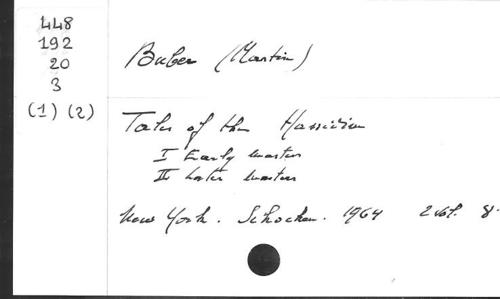 448
192
20
3
(1) (2)
Buber (Martin)
Tales of the Hassidim
I Early masters
II Later masters
New York. Schocken. 1964 2 vol. 8°